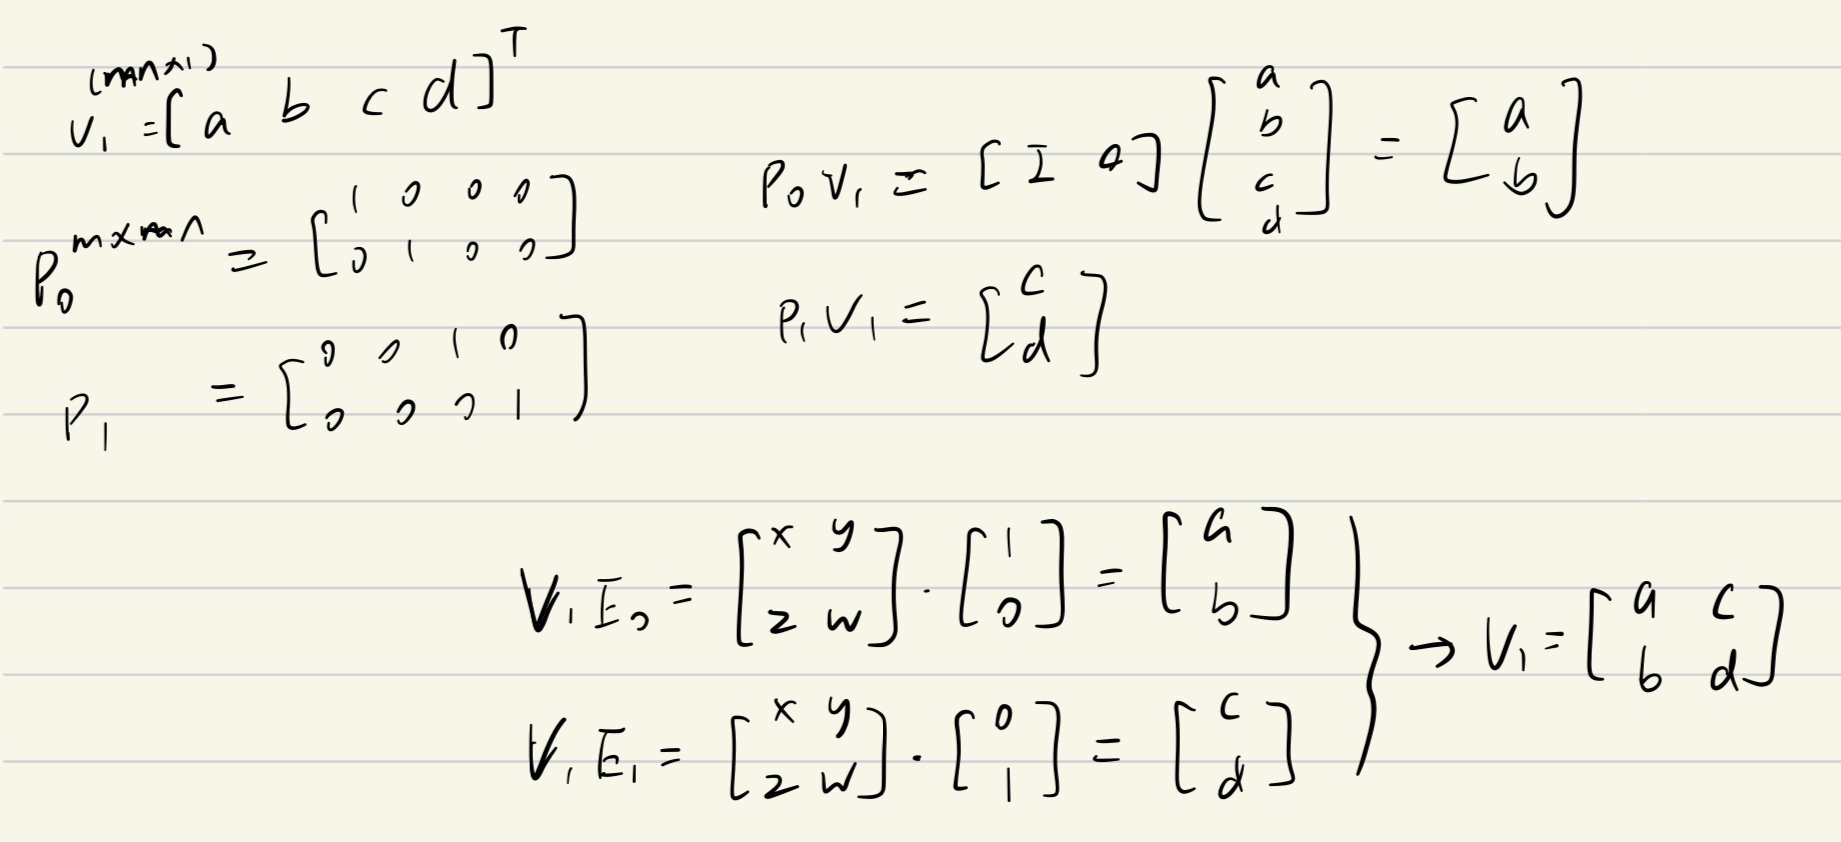 (mn×1)
v₁ = [a b c d]ᵀ
P₀^{m×mn} = [1 0 0 0; 0 1 0 0]
P₁ = [0 0 1 0; 0 0 0 1]
P₀ v₁ = [I 0] [a; b; c; d] = [a; b]
P₁ v₁ = [c; d]
V₁ E₀ = [x y; z w] · [1; 0] = [a; b]
V₁ E₁ = [x y; z w] · [0; 1] = [c; d]
→ V₁ = [a c; b d]